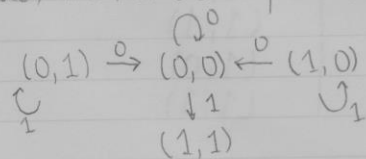 0
(0,1) 0→ (0,0) ←0 (1,0)
1 ↓1 1
(1,1)